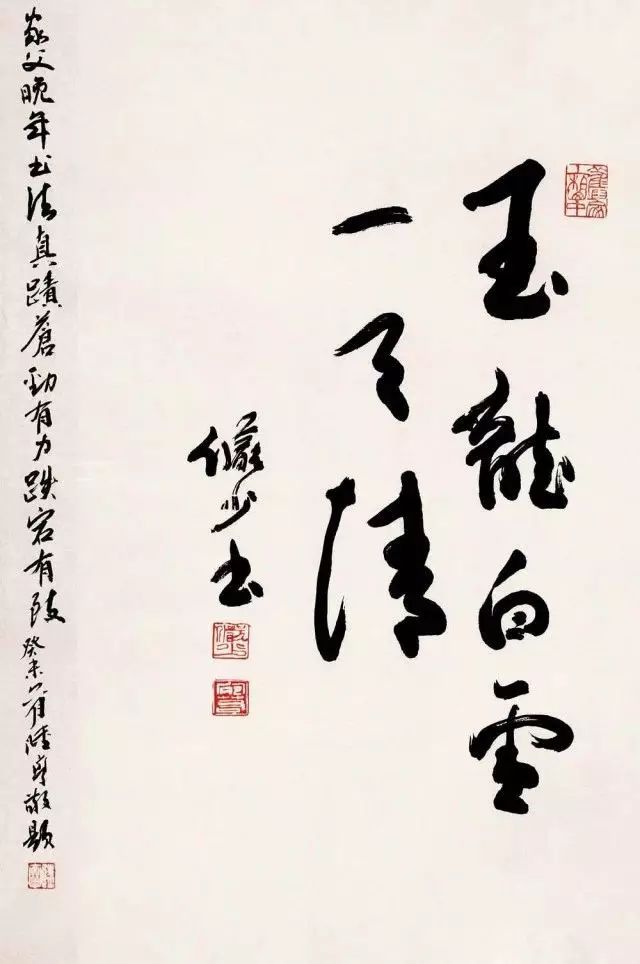 玉龍白雲
一天清
儼少書
家父晚年書法真蹟蒼勁有力跌宕有致 癸未 陸亨敬題